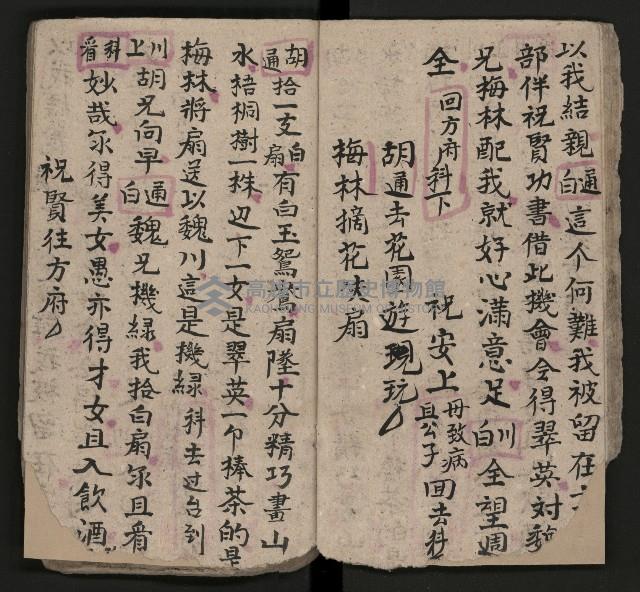 以我結親通白這个何難我被留在
部伴祝賢功書借此機會令得翠英对
兄梅林配我就好心滿意足川白全望週
全回方府科下 祝安上母致病且公子回去科
胡通去花園遊現玩
梅林摘花失扇
胡通拾一支白扇有白玉鴛鴦扇墜十分精巧畫山
水梧桐樹一株边下一女是翠英一个捧茶的是
梅林將扇送以魏川這是機緑科去过台到
川上科看胡兄向早通白魏兄機緑我拾白扇尔且看
妙哉尔得美女愚亦得才女且入飲酒
祝賢往方府
高雄市立歷史博物館
KAOHSIUNG MUSEUM OF HISTORY